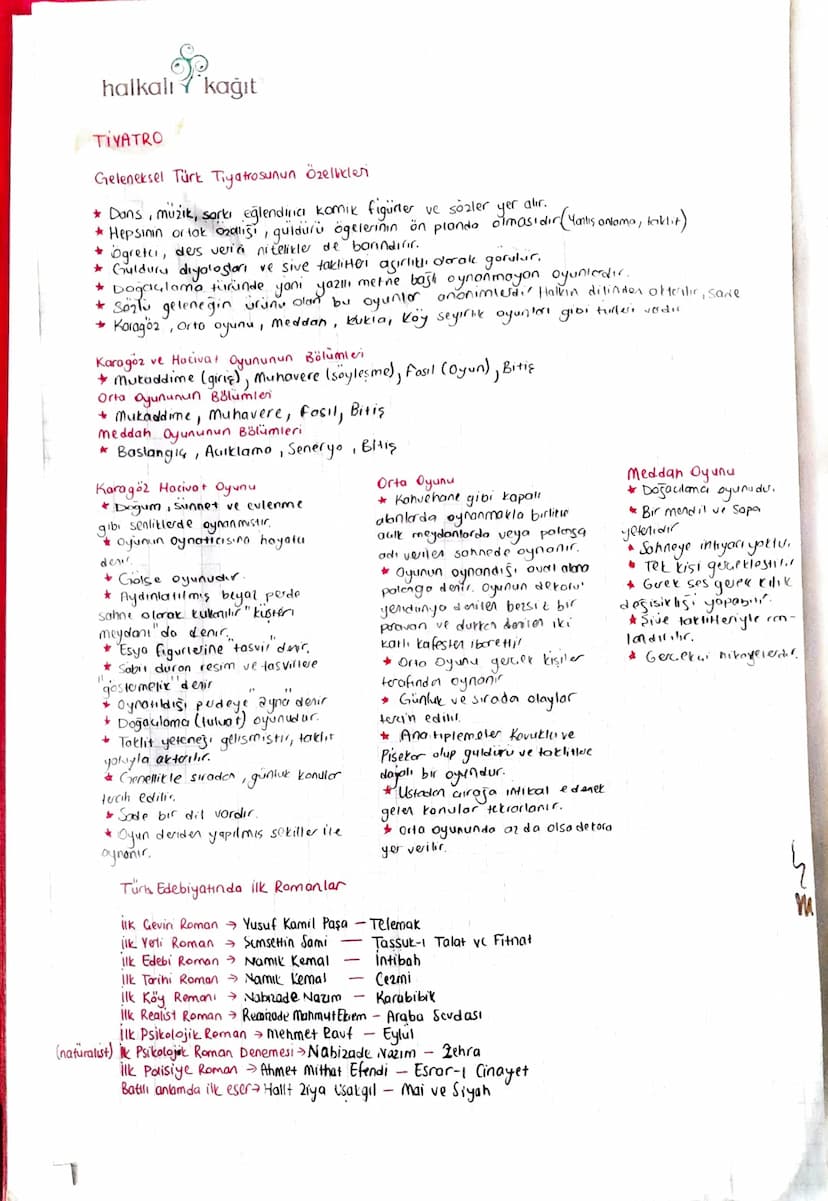 halkalı kağıt
TİYATRO
Geleneksel Türk Tiyatrosunun Özellikleri
* Dans, müzik, şarkı eğlendirici komik figürler ve sözler yer alır.
* Hepsinin ortak özelliği, güldürü ögelerinin ön planda olmasıdır (Yanlış anlama, taklit)
* Öğretici, ders verici nitelikler de barındırır.
* Güldürü diyalogları ve şive taklitleri ağırlıklı olarak görülür.
* Doğaçlama türünde yani yazılı metne bağlı oynanmayan oyunlardır.
* Sözlü geleneğin ürünü olan bu oyunlar anonimlerdir Halkın dilinden aktarılır, sade
* Karagöz, Orta oyunu, Meddah, kukla, köy seyirlik oyunları gibi türleri vardır
Karagöz ve Hacivat Oyununun Bölümleri
* Mukaddime (giriş), Muhavere (söyleşme), Fasıl (Oyun), Bitiş
Orta Oyununun Bölümleri
* Mukaddime, Muhavere, Fasıl, Bitiş
Meddah Oyununun Bölümleri
* Başlangıç, Açıklama, Seneryo, Bitiş
Karagöz Hacivat Oyunu
* Doğum, Sünnet ve evlenme
gibi şenliklerde oynanmıştır.
* Oyunun oynatıcısına hayali
denir.
* Gölge oyunudur.
* Aydınlatılmış beyaz perde
sahne olarak kullanılır "küşteri
meydanı" da denir.
* Eşya figürlerine "tasvir" denir.
* Sabit duran resim ve tasvirlere
"göstermelik" denir
* Oynatıldığı perdeye "ayna" denir
* Doğaçlama (tuluat) oyunudur.
* Taklit yeteneği gelişmiştir, taklit
yoluyla aktarılır.
* Genellikle sıradan, günlük konular
tercih edilir.
* Sade bir dil vardır.
* Oyun deriden yapılmış şekiller ile
oynanır.
Orta Oyunu
* Kahvehane gibi kapalı
alanlarda oynanmakla birlikte
açık meydanlarda veya palanga
adı verilen sahnede oynanır.
* Oyunun oynandığı oval alana
palanga denir. Oyunun dekoru
yenidünya denilen bezsiz bir
paravan ve dükkan denilen iki
katlı kafesten ibarettir
* Orta Oyunu gerçek kişiler
tarafından oynanır
* Günlük ve sırada olaylar
tercih edilir.
* Ana tiplemeler Kavuklu ve
Pişekar olup güldürü ve taklitlere
dayalı bir oyundur.
* Ustadan çırağa intikal ederek
gelen konular tekrarlanır.
* Orta oyununda az da olsa dekora
yer verilir.
Meddah Oyunu
* Doğaçlama oyunudur.
* Bir mendil ve sopa
yeterlidir
* Sahneye ihtiyacı yoktur.
* Tek kişi gerçekleştirir
* Gerek ses gerek kılık
değişikliği yapabilir.
* Şive taklitleriyle can-
landırılır.
* Gerçekçi hikayelerdir.
Türk Edebiyatında İlk Romanlar
İlk Çeviri Roman → Yusuf Kamil Paşa – Telemak
İlk Yerli Roman → Şemsettin Sami — Taşşuk-ı Talat ve Fitnat
İlk Edebi Roman → Namık Kemal — İntibah
İlk Tarihi Roman → Namık Kemal — Cezmi
İlk Köy Romanı → Nabizade Nazım – Karabibik
İlk Realist Roman → Recaizade Mahmut Ekrem – Araba Sevdası
İlk Psikolojik Roman → Mehmet Rauf – Eylül
(natüralist) İlk Psikolojik Roman Denemesi → Nabizade Nazım – Zehra
İlk Polisiye Roman → Ahmet Mithat Efendi – Esrar-ı Cinayet
Batılı anlamda ilk eser → Halit Ziya Uşaklıgil – Mai ve Siyah